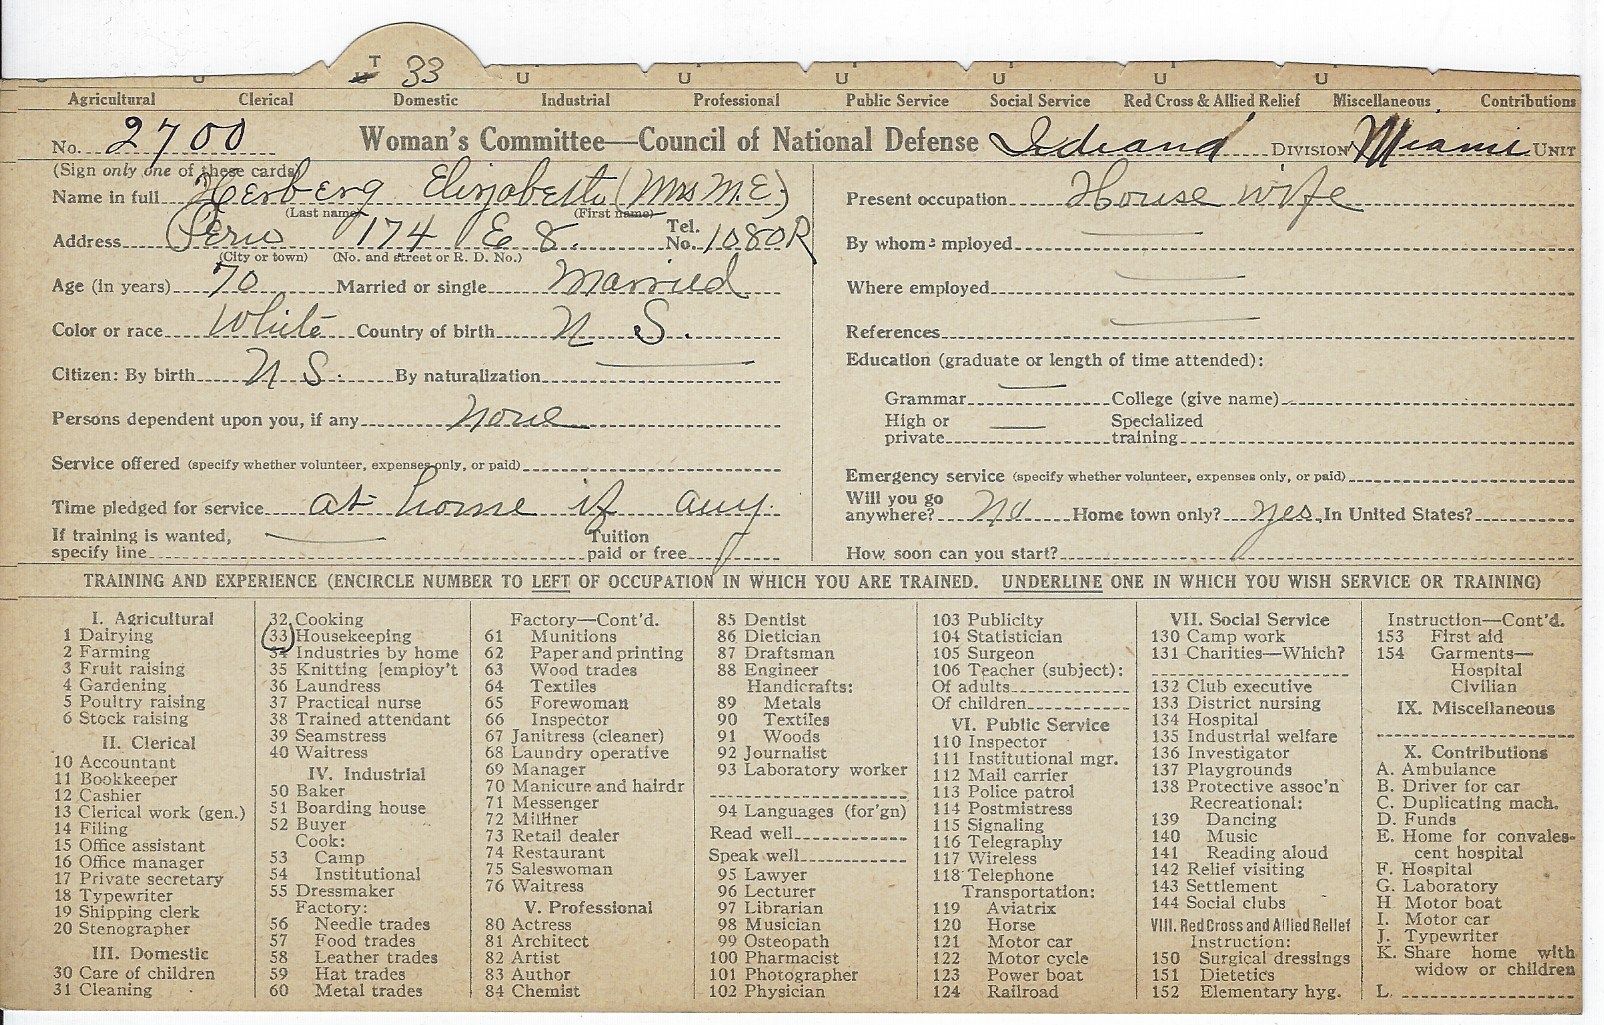 T 33
U U U U U U U
Agricultural Clerical Domestic Industrial Professional Public Service Social Service Red Cross & Allied Relief Miscellaneous Contributions
No. 2700 Woman's Committee—Council of National Defense Indiana DIVISION Miami UNIT
(Sign only one of these cards)
Name in full Herberg Elizabeth (Mrs M.E.)
(Last name) (First name)
Address Peru 174 E 8. Tel. No. 1080R
(City or town) (No. and street or R. D. No.)
Age (in years) 70 Married or single Married
Color or race White Country of birth U S.
Citizen: By birth U S. By naturalization
Persons dependent upon you, if any None
Service offered (specify whether volunteer, expenses only, or paid)
Time pledged for service at home if any.
If training is wanted, specify line Tuition paid or free
Present occupation House wife
By whom employed
Where employed
References
Education (graduate or length of time attended):
Grammar College (give name)
High or private Specialized training
Emergency service (specify whether volunteer, expenses only, or paid)
Will you go anywhere? No Home town only? yes. In United States?
How soon can you start?
TRAINING AND EXPERIENCE (ENCIRCLE NUMBER TO LEFT OF OCCUPATION IN WHICH YOU ARE TRAINED. UNDERLINE ONE IN WHICH YOU WISH SERVICE OR TRAINING)
I. Agricultural
1 Dairying
2 Farming
3 Fruit raising
4 Gardening
5 Poultry raising
6 Stock raising
II. Clerical
10 Accountant
11 Bookkeeper
12 Cashier
13 Clerical work (gen.)
14 Filing
15 Office assistant
16 Office manager
17 Private secretary
18 Typewriter
19 Shipping clerk
20 Stenographer
III. Domestic
30 Care of children
31 Cleaning
32 Cooking
33 Housekeeping
34 Industries by home
35 Knitting [employ't
36 Laundress
37 Practical nurse
38 Trained attendant
39 Seamstress
40 Waitress
IV. Industrial
50 Baker
51 Boarding house
52 Buyer
Cook:
53 Camp
54 Institutional
55 Dressmaker
Factory:
56 Needle trades
57 Food trades
58 Leather trades
59 Hat trades
60 Metal trades
Factory—Cont'd.
61 Munitions
62 Paper and printing
63 Wood trades
64 Textiles
65 Forewoman
66 Inspector
67 Janitress (cleaner)
68 Laundry operative
69 Manager
70 Manicure and hairdr
71 Messenger
72 Milliner
73 Retail dealer
74 Restaurant
75 Saleswoman
76 Waitress
V. Professional
80 Actress
81 Architect
82 Artist
83 Author
84 Chemist
85 Dentist
86 Dietician
87 Draftsman
88 Engineer
Handicrafts:
89 Metals
90 Textiles
91 Woods
92 Journalist
93 Laboratory worker
94 Languages (for'gn)
Read well
Speak well
95 Lawyer
96 Lecturer
97 Librarian
98 Musician
99 Osteopath
100 Pharmacist
101 Photographer
102 Physician
103 Publicity
104 Statistician
105 Surgeon
106 Teacher (subject):
Of adults
Of children
VI. Public Service
110 Inspector
111 Institutional mgr.
112 Mail carrier
113 Police patrol
114 Postmistress
115 Signaling
116 Telegraphy
117 Wireless
118 Telephone
Transportation:
119 Aviatrix
120 Horse
121 Motor car
122 Motor cycle
123 Power boat
124 Railroad
VII. Social Service
130 Camp work
131 Charities—Which?
132 Club executive
133 District nursing
134 Hospital
135 Industrial welfare
136 Investigator
137 Playgrounds
138 Protective assoc'n
Recreational:
139 Dancing
140 Music
141 Reading aloud
142 Relief visiting
143 Settlement
144 Social clubs
VIII. Red Cross and Allied Relief
Instruction:
150 Surgical dressings
151 Dietetics
152 Elementary hyg.
Instruction—Cont'd.
153 First aid
154 Garments—
Hospital
Civilian
IX. Miscellaneous
X. Contributions
A. Ambulance
B. Driver for car
C. Duplicating mach.
D. Funds
E. Home for convales-
cent hospital
F. Hospital
G. Laboratory
H Motor boat
I. Motor car
J. Typewriter
K. Share home with
widow or children
L.